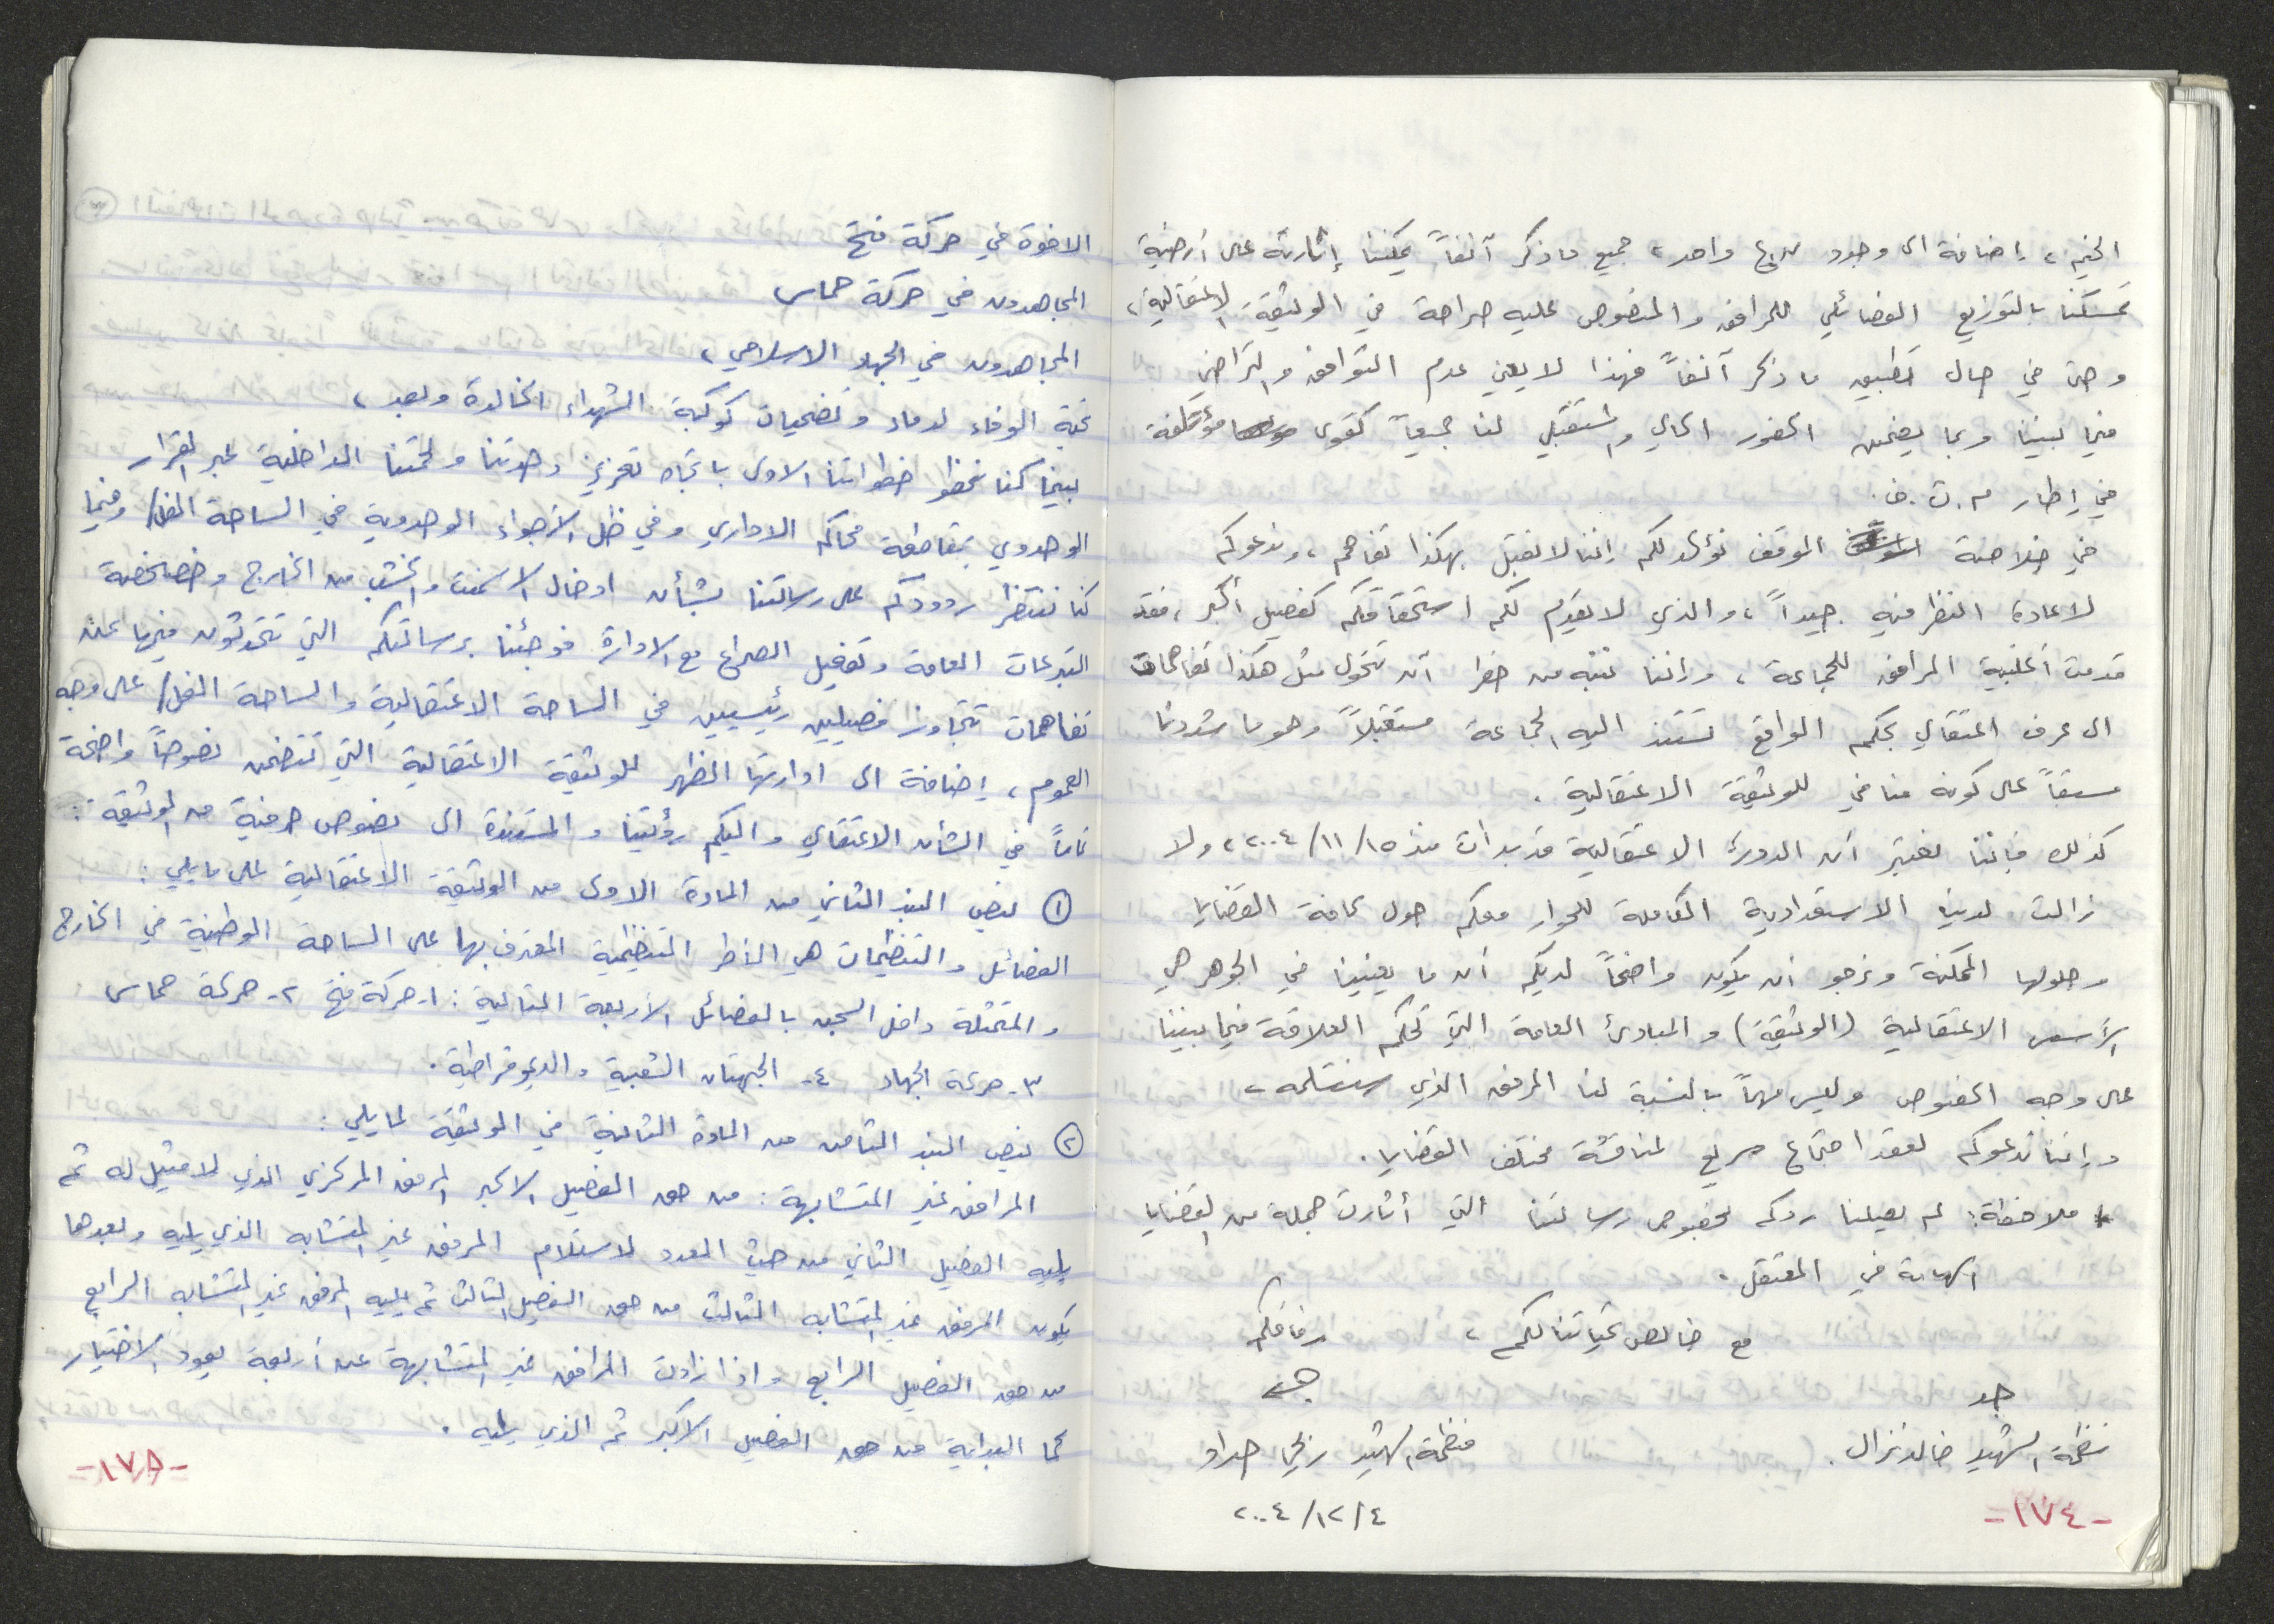 الخيم، إضافة الى وجود مرفق واحد، جميع ما ذكر آنفاً يمكننا إثارته على أرضية
تمسكنا بالتوزيع الفصائلي للمرافق والمنصوص عليه صراحة في الوثيقة الاعتقالية،
وحتى في حال تطبيق ما ذكر آنفاً فهذا لا يعني عدم التوافق والتراضي
فيما بيننا وبما يضمن الحضور الحالي والمستقبلي لنا جميعاً كقوى مؤتلفة
في إطار م.ت.ف.
في خلاصة الموقف نؤكد لكم إننا لا نقبل بهكذا تفاهم، وندعوكم
لاعادة النظر فيه جيداً، والذي لا يقدم لكم استحقاقكم كفصيل أكبر، فقد
قدمت أغلبية المرافق للجماعة، وإننا ننبه من خطر أن تتحول مثل هكذا تفاهمات
الى عرف اعتقالي بحكم الواقع تستند اليه الجماعة مستقبلاً وهو ما شددنا
مسبقاً على كونه منافي للوثيقة الاعتقالية.
كذلك فإننا نعتبر أن الدورة الاعتقالية قد بدأت منذ ١٥/١١/٢٠٠٤، ولا
زالت لدينا الاستعدادية الكاملة للحوار معكم حول كافة القضايا
وحلولها الممكنة ونرجو ان يكون واضحاً لديكم أن ما يعنينا في الجوهر هي
الأسس الاعتقالية (الوثيقة) والمبادئ العامة التي تحكم العلاقة فيما بيننا
على وجه الخصوص وليس مهماً بالنسبة لنا المرفق الذي سنستلمه،
وإننا ندعوكم لعقد اجتماع سريع لمناقشة مختلف القضايا.
* ملاحظة: لم يصلنا ردكم بخصوص رسالتنا التي أثارت جملة من القضايا
الهامة في المعتقل.
مع خالص تحياتنا لكم، رفاقكم
جد جش
منظمة الشهيد خالد نزال. منظمة الشهيد ربحي حداد
٤/١٢/٢٠٠٤
-١٧٤-
الاخوة في حركة فتح
المجاهدون في حركة حماس
المجاهدون في الجهاد الاسلامي،
تحية الوفاء لدماء وتضحيات كوكبة الشهداء الخالدة وبعد،
بينما كنا نخطو خطواتنا الاولى باتجاه تعزيز وحدتنا ولحمتنا الداخلية عبر القرار
الوحدوي بمقاطعة محاكم الاداري وفي ظل الأجواء الوحدوية في الساحة الفل/ وفيما
كنا ننتظر ردودكم على رسالتنا بشأن ادخال الاسمنت والخشب من الخارج وخصخصة
التبرعات العامة وتفعيل الصراع مع الادارة فوجئنا برسالتكم التي تتحدثون فيها عن
تفاهمات تتجاوز فصيليين رئيسيين في الساحة الاعتقالية والساحة الفل/ على وجه
العموم، إضافة الى ادارتها الظهر للوثيقة الاعتقالية التي تتضمن نصوصاً واضحة
تماماً في الشأن الاعتقالي واليكم رؤيتنا والمستندة الى نصوص حرفية من الوثيقة:
① ينص البند الثاني من المادة الاولى من الوثيقة الاعتقالية على ما يلي:
الفصائل والتنظيمات هي الأطر التنظيمية المعترف بها على الساحة الوطنية في الخارج
والمتمثلة داخل السجن بالفصائل الأربعة التالية: ١- حركة فتح ٢- حركة حماس
٣- حركة الجهاد ٤- الجبهتان الشعبية والديموقراطية.
② ينص البند الثامن من المادة الثانية في الوثيقة لما يلي:
المرافق غير المتشابهة: من حق الفصيل الاكبر المرفق المركزي الذي لا مثيل له ثم
يليه الفصيل الثاني من حيث العدد لاستلام المرفق غير المتشابه الذي يليه وبعدها
يكون المرفق غير المتشابه الثالث من حق الفصيل الثالث ثم يليه المرفق غير المتشابه الرابع
من حق الفصيل الرابع واذا زادت المرافق غير المتشابهة عن أربعة يعود الاختيار
كما البداية من حق الفصيل الاكبر ثم الذي يليه.
-١٧٥-